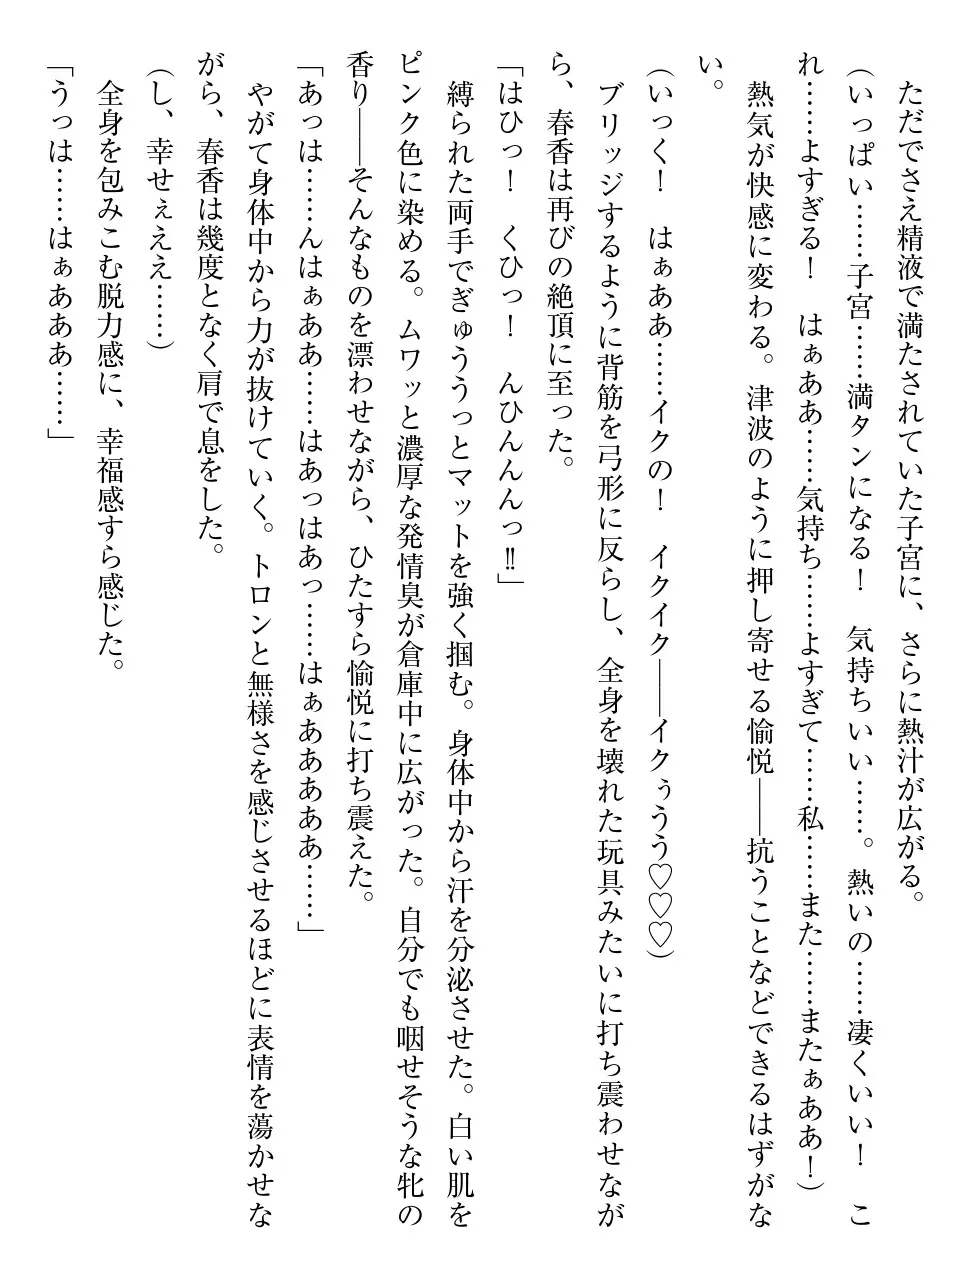 ただでさえ精液で満たされていた子宮に、さらに熱汁が広がる。
（いっぱい……子宮……満タンになる！　気持ちいい……。熱いの……凄くいい！　こ
れ……よすぎる！　はぁああ……気持ち……よすぎて……私……また……またぁああ！）
熱気が快感に変わる。津波のように押し寄せる愉悦――抗うことなどできるはずがな
い。
（いっく！　はぁああ……イクの！　イクイク――イクぅうう♡♡♡）
ブリッジするように背筋を弓形に反らし、全身を壊れた玩具みたいに打ち震わせなが
ら、春香は再びの絶頂に至った。
「はひっ！　くひっ！　んひんんんっ‼」
縛られた両手でぎゅううっとマットを強く掴む。身体中から汗を分泌させた。白い肌を
ピンク色に染める。ムワッと濃厚な発情臭が倉庫中に広がった。自分でも咽せそうな牝の
香り――そんなものを漂わせながら、ひたすら愉悦に打ち震えた。
「あっは……んはぁああ……はあっはあっ……はぁあああああ……」
やがて身体中から力が抜けていく。トロンと無様さを感じさせるほどに表情を蕩かせな
がら、春香は幾度となく肩で息をした。
（し、幸せぇええ……）
全身を包みこむ脱力感に、幸福感すら感じた。
「うっは……はぁあああ……」